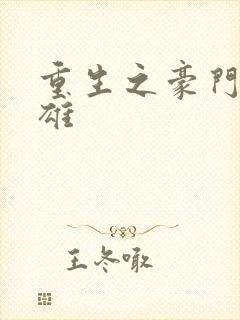 重生之豪門
雄
王冬噉